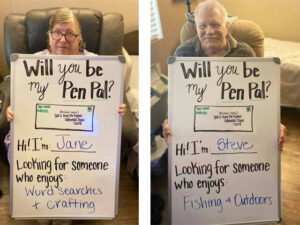 Will you be
my Pen Pal?
Hi! I'm Jane
Looking for someone
who enjoys:
Word searches
+ crafting
Will you be
my Pen Pal?
Hi! I'm Steve
Looking for someone
who enjoys:
Fishing + Outdoors